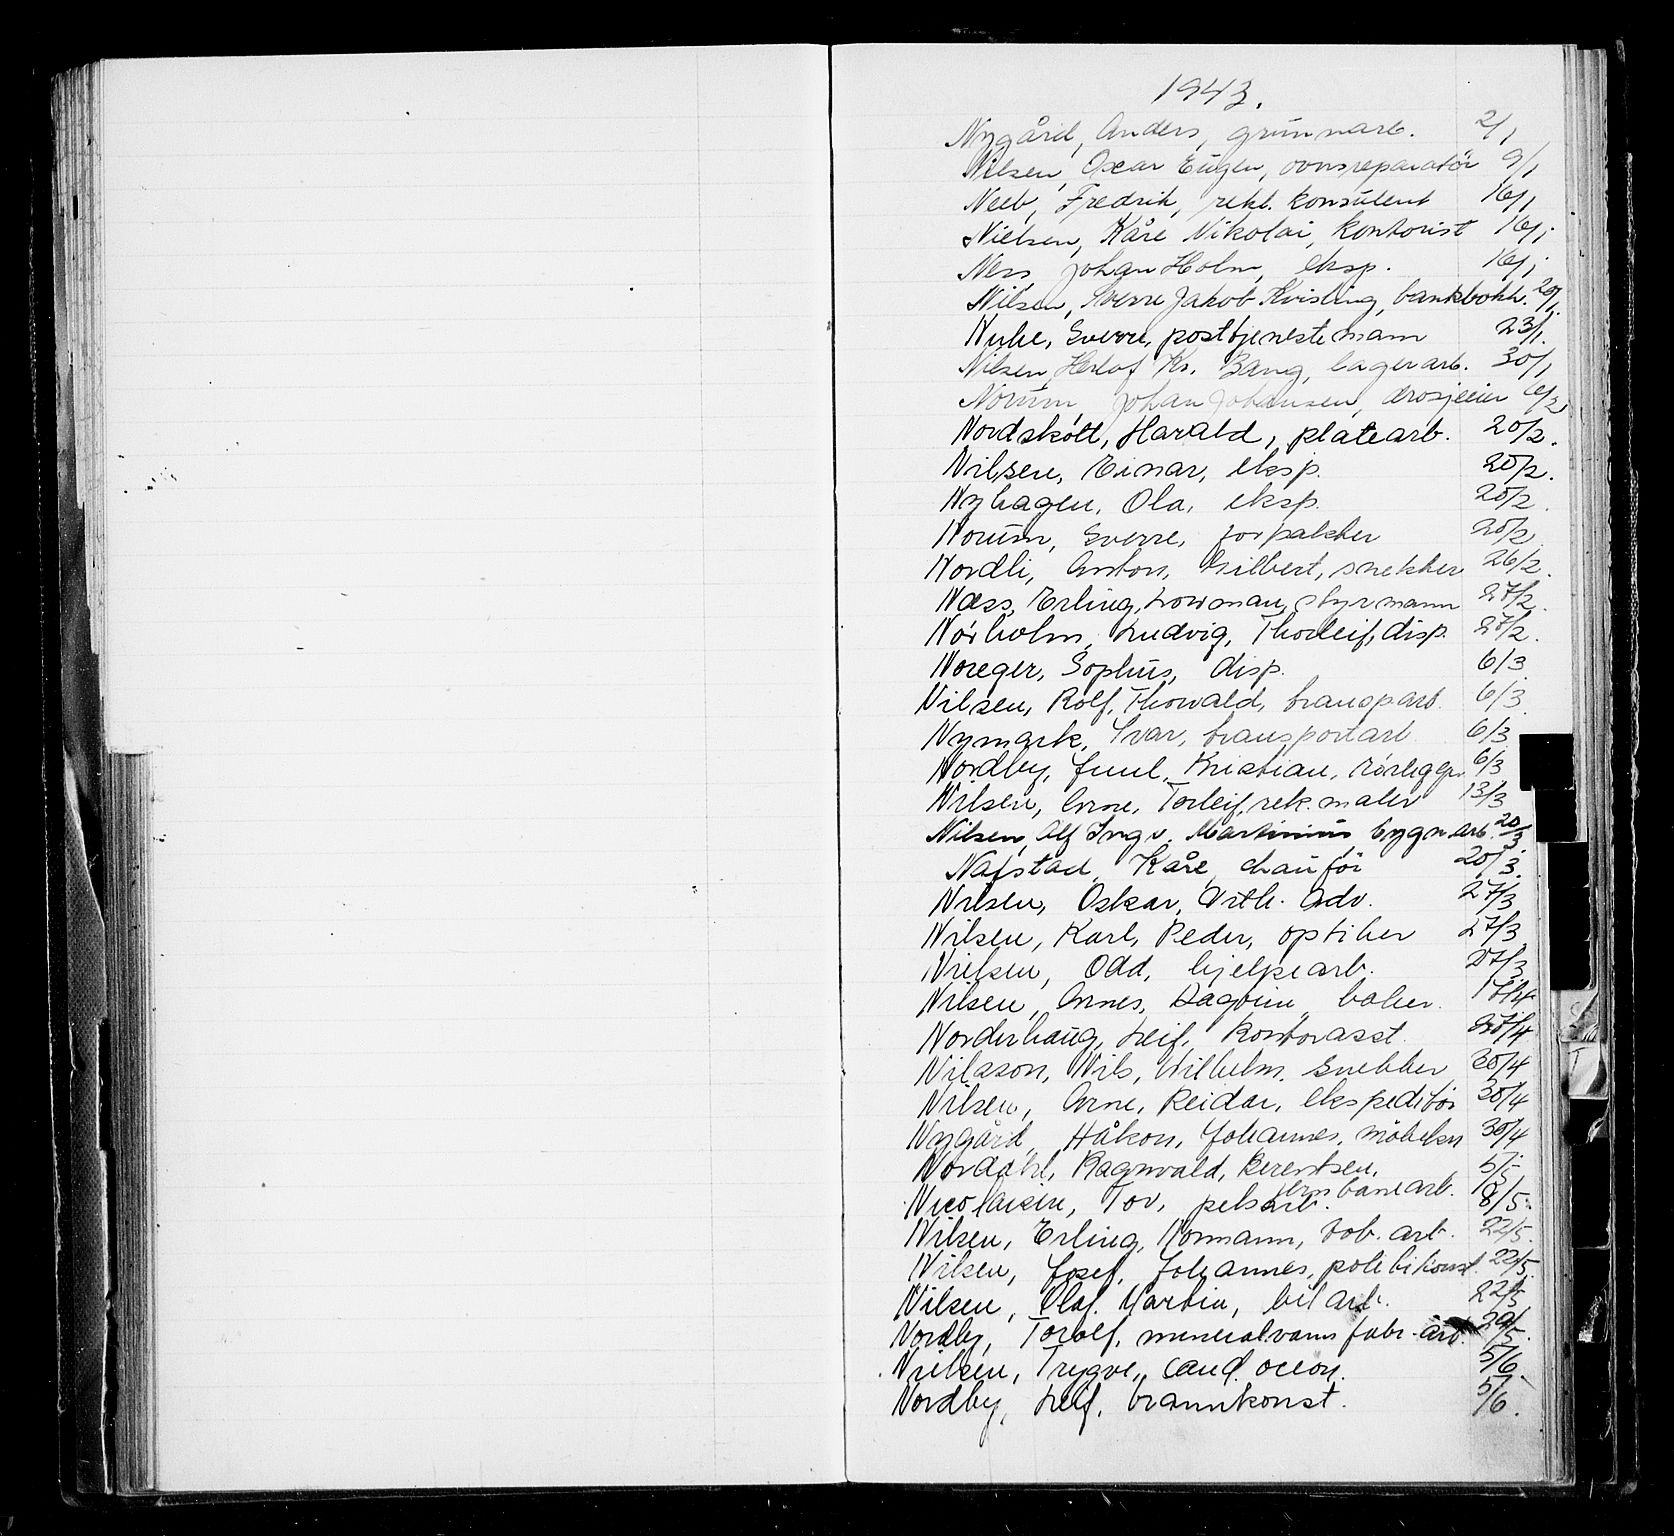 1943.
Nygård, Anders, grunnarb. 2/1
Nilsen, Oscar Eugen, ovnsreparatör 9/1
Neeb, Fredrik, rekl. konsulent 16/1
Nielsen, Kåre Nikolai, kontorist 16/1
Ness, Johan Holm, eksp. 16/1
Nilsen, Sverre Jakob Kvisling, bankbokh.
Sverre, posttjenestemann 23/1.
Nilsen, Herlof Kr. Bang, lagerarb. 30/1
Norum Johan Johansen, drosjeeier 6/2
Nordskött, Harald, platearb. 20/2.
Nilsen, Einar, eksp. 20/2.
Nyhagen, Ola, eksp. 20/2.
Norum, Sverre, forpakter 20/2
Nordli, Anton, Hilbert, snekker 26/2.
Næss, Erling, Lowman, styrmann 27/2.
Nørholm, Ludvig, Thorleif, disp. 27/2.
Noreger, Sophus, disp. 6/3
Nilsen, Rolf, Thorvald, transp.arb. 6/3.
Nymark, Ivar, transportarb. 6/3
Nordby, Juul, Kristian, rörleggr. 6/3
Nilsen, Arne, Torleif, rek. maler 13/3
Nilsen, Alf Ingv. Martinius bygn.arb. 20/3
Nafstad, Kåre, chauför 20/3.
Nilsen, Oskar, Vilh. Adv. 27/3
Nilsen, Karl, Peder, optiker 27/3
Nielsen, Odd, hjelpearb. 27/3
Nilsen, Arnes, Dagfinn, baker. 17/4
Norderhaug, Leif, kontorasst. 27/4
Nilsson, Nils, Wilhelm, snekker 30/4
Nilsen, Arne, Reidar, ekspeditör 30/4
Nygård, Håkon, Johannes, möbelsn 30/4
Nordahl, Ragnvald, Berentsen, 5/5
jernbanearb.
Nicolaisen, Tov, pelsarb. 8/5.
Nilsen, Erling, Normann, tob. arb. 22/5.
Nilsen, Josef, Johannes, politikonst. 22/5.
Nilsen, Olaf. Martin, bilarb. 22/5
Nordby, Torolf, mineralvannfabr.-arb. 29/5.
Nielsen, Trygve, cand. oecon. 5/6.
Nordby, Leif, brannkonst. 5/6.